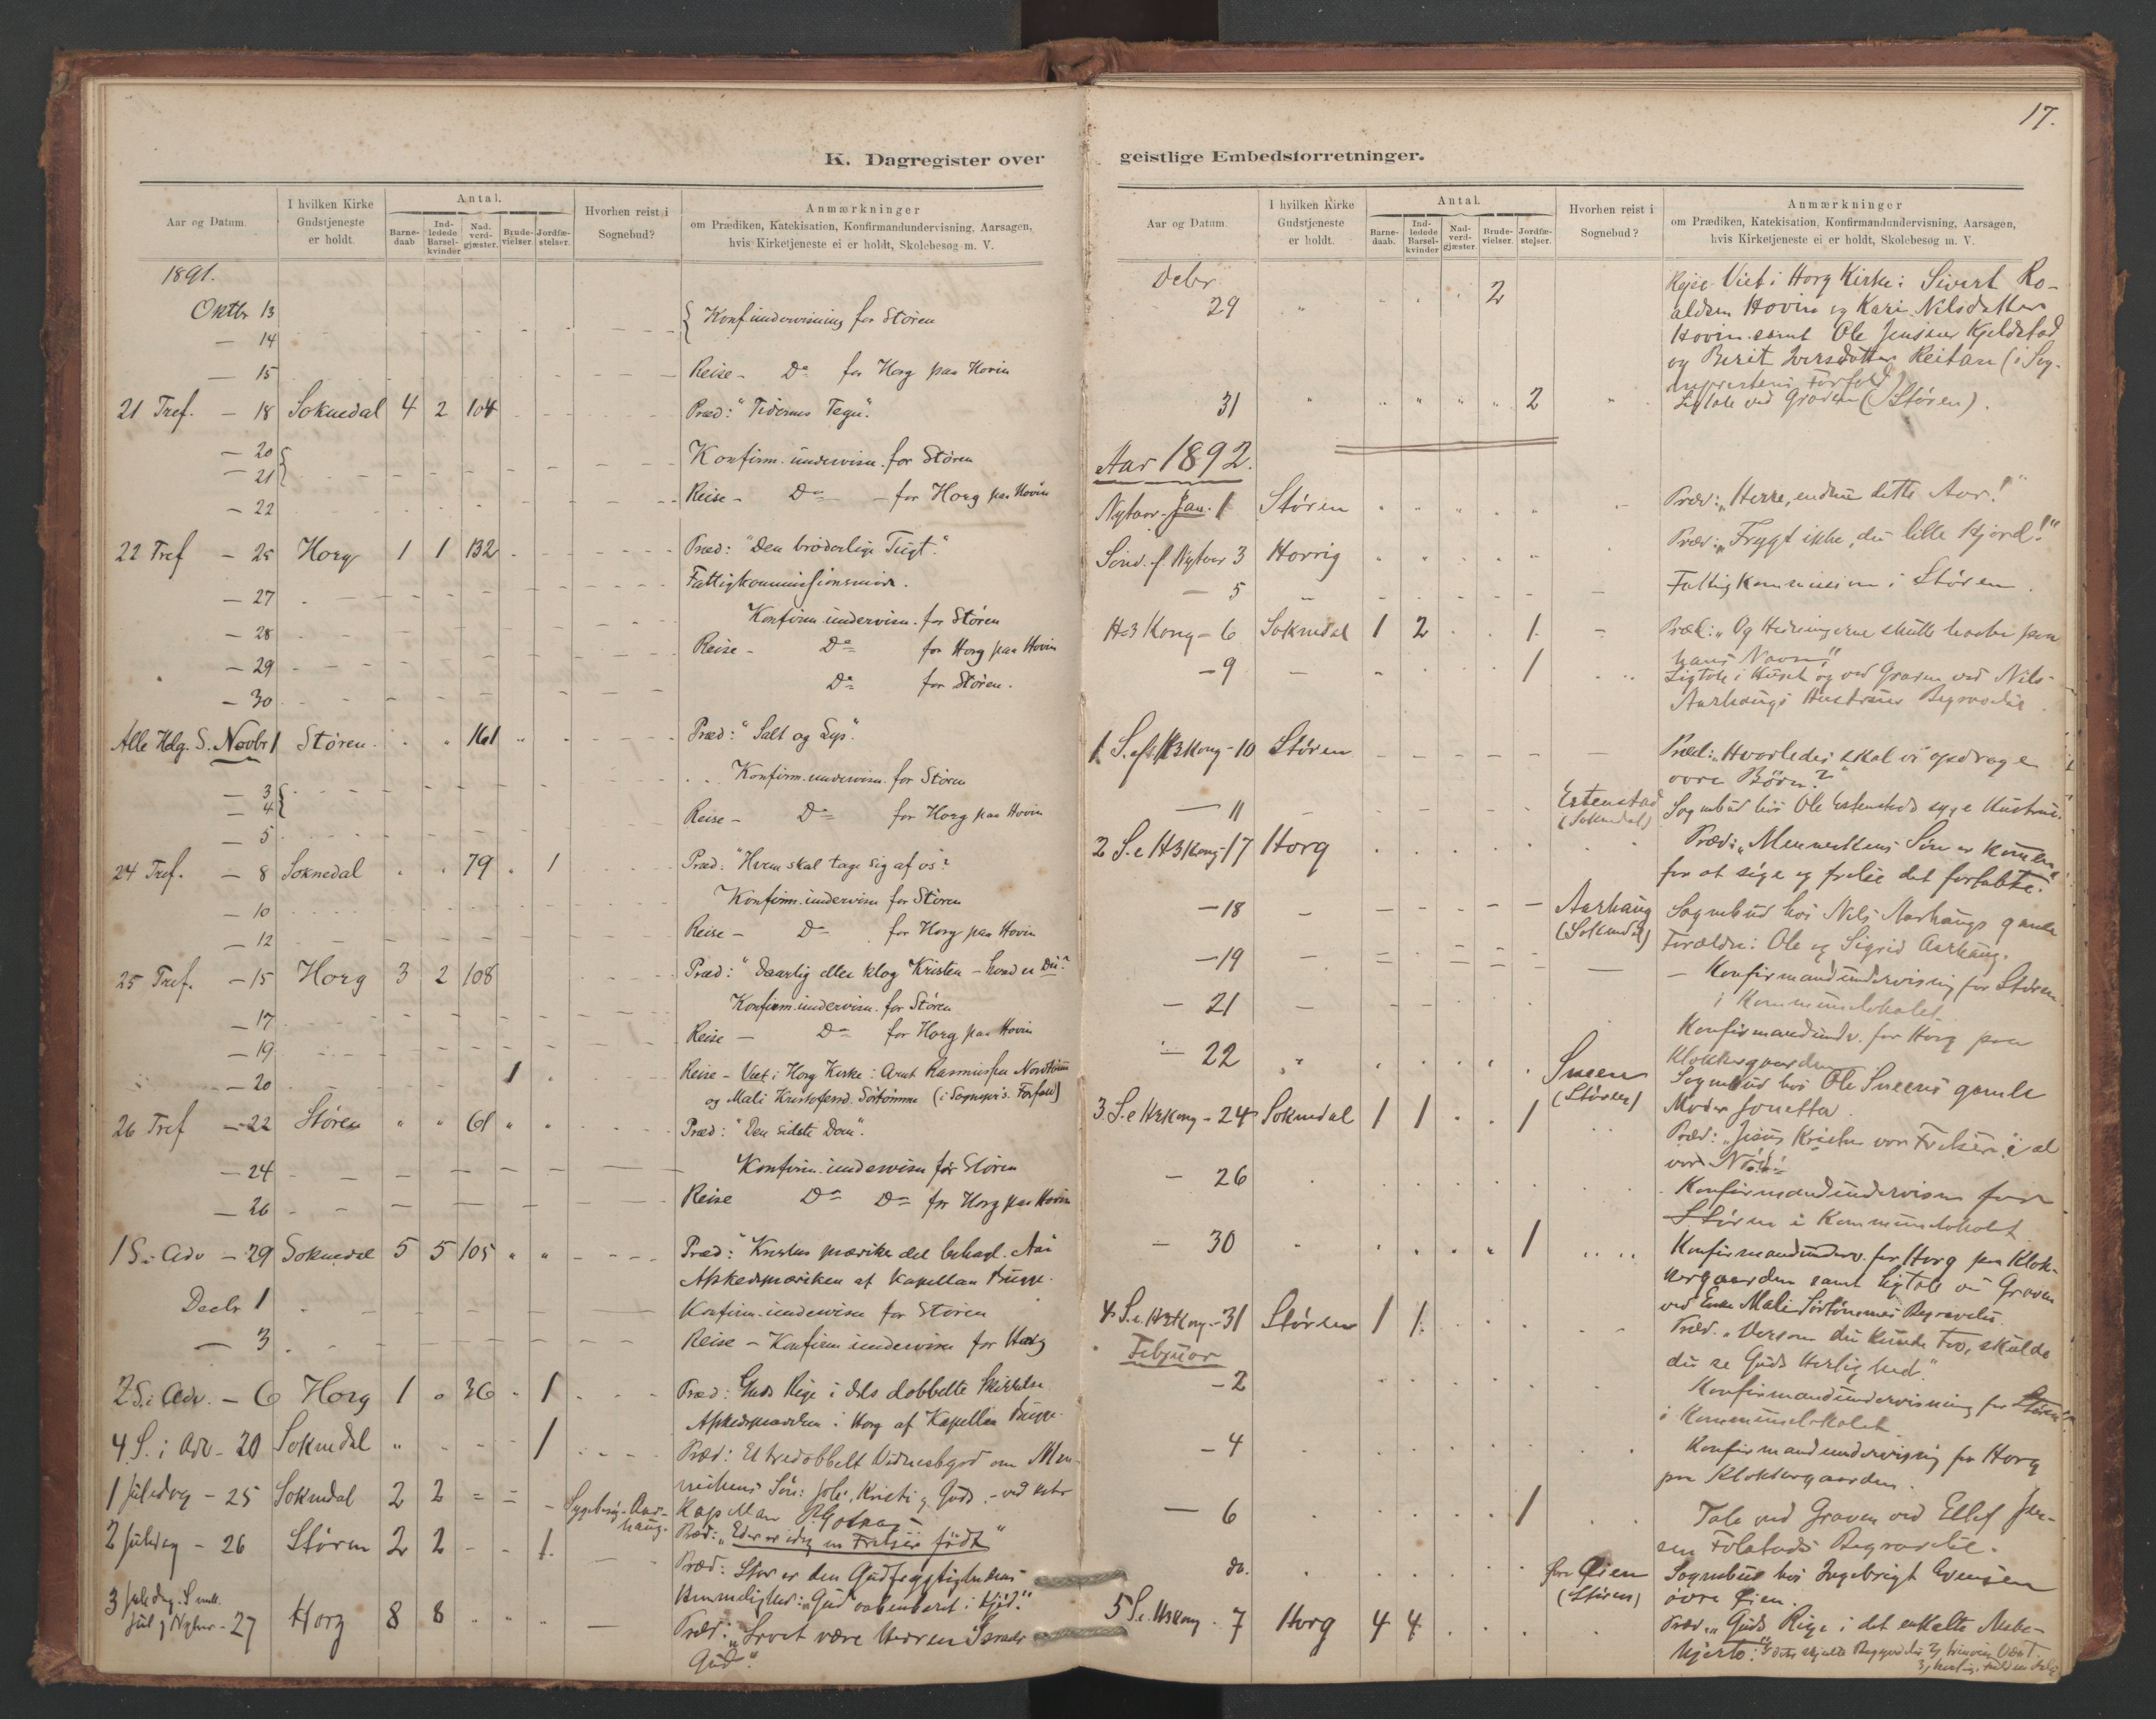 17.
K. Dagregister over geistlige Embedsforretninger.
Aar og Datum.
I hvilken Kirke Gudstjeneste er holdt.
Antal.
Barne-daab
Ind-ledede Barsel-kvinder
Nad-verd-gjæster.
Brude-vielser.
Jordfæ-stelser.
Hvorhen reist i Sognebud?
Anmærkninger
om Prædiken, Katekisation, Konfirmandundervisning, Aarsagen,
hvis Kirketjeneste ei er holdt, Skolebesøg m. V.
1891.
Oktbr 13 Konf.undervisning for Støren
— 14
— 15 Reise - Do for Horg paa Hovin
21 Tref. — 18 Soknedal 4 2 104 Præd: "Tidernes Tegn".
— 20 Konfirm. undervisn. for Støren
— 21
— 22 Reise - Do - for Horg paa Hovin
22 Tref — 25 Horg 1 1 132 Præd: "Den broderlige Tugt."
— 27 Fattigkommissionsmøde.
— 28 Konfirm. undervisn. for Støren
— 29 Reise - Do for Horg paa Hovin
— 30 Do for Støren.
Alle Helg. S. Novbr 1 Støren 161 Præd: "Salt og Lys".
— 3 Konfirm. undervisn. for Støren
— 4
— 5 Reise - Do for Horg paa Hovin
24 Tref. — 8 Soknedal 79 1 Præd: "Hvem skal tage sig af os"?
— 10 Konfirm. undervisn for Støren
— 12 Reise - Do for Horg paa Hovin
25 Tref. — 15 Horg 3 2 108 Præd: "Daarlig eller klog Kristen - hvad er Du?"
— 17 Konfirm. undervisn. for Støren
— 19 Reise — Do for Horg paa Hovin
— 20 1 Reise - Viet i Horg Kirke: Arnt Rasmussen
og Mali (i Sognepr's. Forfald)
26 Tref — 22 Støren " " 61 " " Præd: "Den sidste Dom".
— 24 Konfirm. undervisn for Støren
— 26 Reise Do Do for Horg paa Hovin
1 S. i Adv — 29 Soknedal 5 5 105 " " Præd: "Kristus prædiker det behagl. Aar
Afskedsprædiken af Kapellan Bugge.
Decbr 1 Konfirm. undervisn for Støren
— 3 Reise - Konfirm undervisn for Horg
2 S. i Adv. — 6 Horg 1 " 36 " 1 Præd: Guds Rige i dets dobbelte Skikkelse
Afskedsprædiken i Horg af Kapellan Bugge.
4 S. i Adv - 20 Soknedal " 1 Præd: Et tredobbelt Vidnesbyrd om Men-
neskens Søn: Joh's, Kristi og Guds. - ved
1 Juledag - 25 Soknedal 2 2 = = Sygebesøg Aar-haug. Kapellan
2 Juledag - 26 Støren 2 2 - - 1. Præd: "Eder er idag en Frelser født"
Præd: Stor er den Gudfrygtighedens
Hemmelighed: "Gud aabenbaret i Kjød."
3 Juledag. S. mell. Jul og Nytaar - 27 Horg 8 8 Præd: "Lovet være Herren Israels
Gud".
Decbr
29 " 2 Viet i Horg Kirke: Sivert Ro-
aldsen Hovin og Kari Nilsdatter
Hovin samt Ole Jensen Kjeldstad
og Berit Iversdatter Reitan (i Sog-
neprestens Forfald)
31 " " " " " 2 " Ligtale ved Graven (Støren).
Aar 1892.
Nytaar. Jan. 1 Støren Præd: "Herre, endnu dette Aar!"
Sønd. f. Nytaar 3 Horrig Præd: "Frygt ikke, du lille Hjord!"
— 5 Fattigkommission i Støren.
H3 Kong - 6 Soknedal 1 2 1 Præd: "Og Hedningerne skulle haabe paa
hans Navn."
— 9 1 Ligtale i Huset og ved Graven ved Nils
Aarhaugs Hustrues Begravelse.
1 S. eft. H3 Kong - 10 Støren Præd: "Hvorledes skal vi opdrage
vore Børn?"
— 11 Estenstad (Soknedal) Sognebud hos Ole Estenstads syge Hustru.
2 S. e H3 Kong - 17 Horg Præd: "Menneskens Søn er kommen
for at søge og frelse det fortabte."
— 18 Aarhaug (Soknedal) Sognebud hos Nils Aarhaugs gamle
Forældre: Ole og Sigrid Aarhaug.
— 19 — Konfirmandundervisning for Støren
i Kommunelokalet.
— 21 Konfirmandunderv. for Horg paa
Klokkergaarden
— 22 Sneen (Støren) Sognebud hos Ole Sneens gamle
Moder Jonetta.
3 S. e H3Kong - 24 Soknedal 1 1 1 Præd: "Jesus Kristus vor Frelser i al
vor Nød."
— 26 Konfirmandundervisn for
Støren i Kommunelokalet.
— 30 1 Konfirmandunderv. for Horg paa Klok-
kergaarden samt Ligtale
ved Enke Mali Begravelse.
4 S. e. H3Kong - 31 Støren 1 1. Præd. "Dersom du kunde tro, skulde
du se Guds Herlighed."
Februar
— 2 Konfirmandundervisning for Støren
i Kommunelokalet
— 4 Konfirmandundervisnig for Horg
paa Klokkergaarden.
— 6 1 Tale ved Graven ved Ellef Jen-
sen Folstads Begravelse.
do. Øien (Støren) Sognebud hos Ingebrigt Evensen
øvre Øien.
5 S. e. H3Kong - 7 Horg 4 4 Præd. "Guds Rige i det enkelte Mske-
hjerte:"